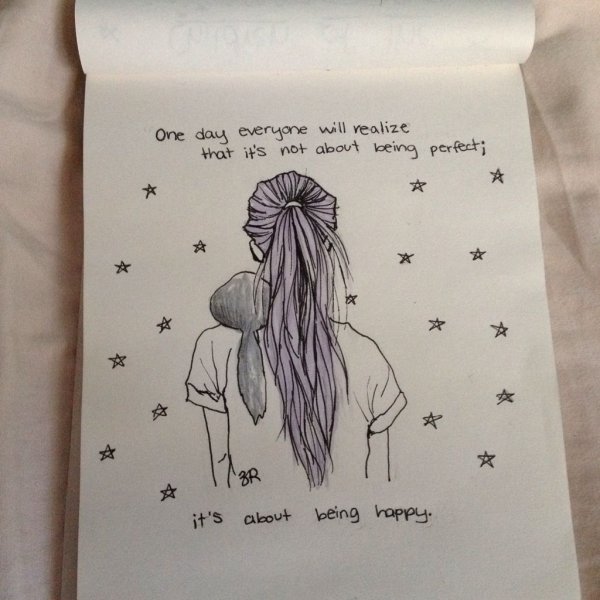 One day everyone will realize
that it's not about being perfect;
JR
it's about being happy.